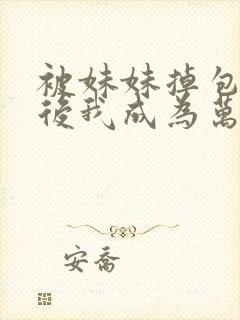 被妹妹掉包
後我成為萬
安喬